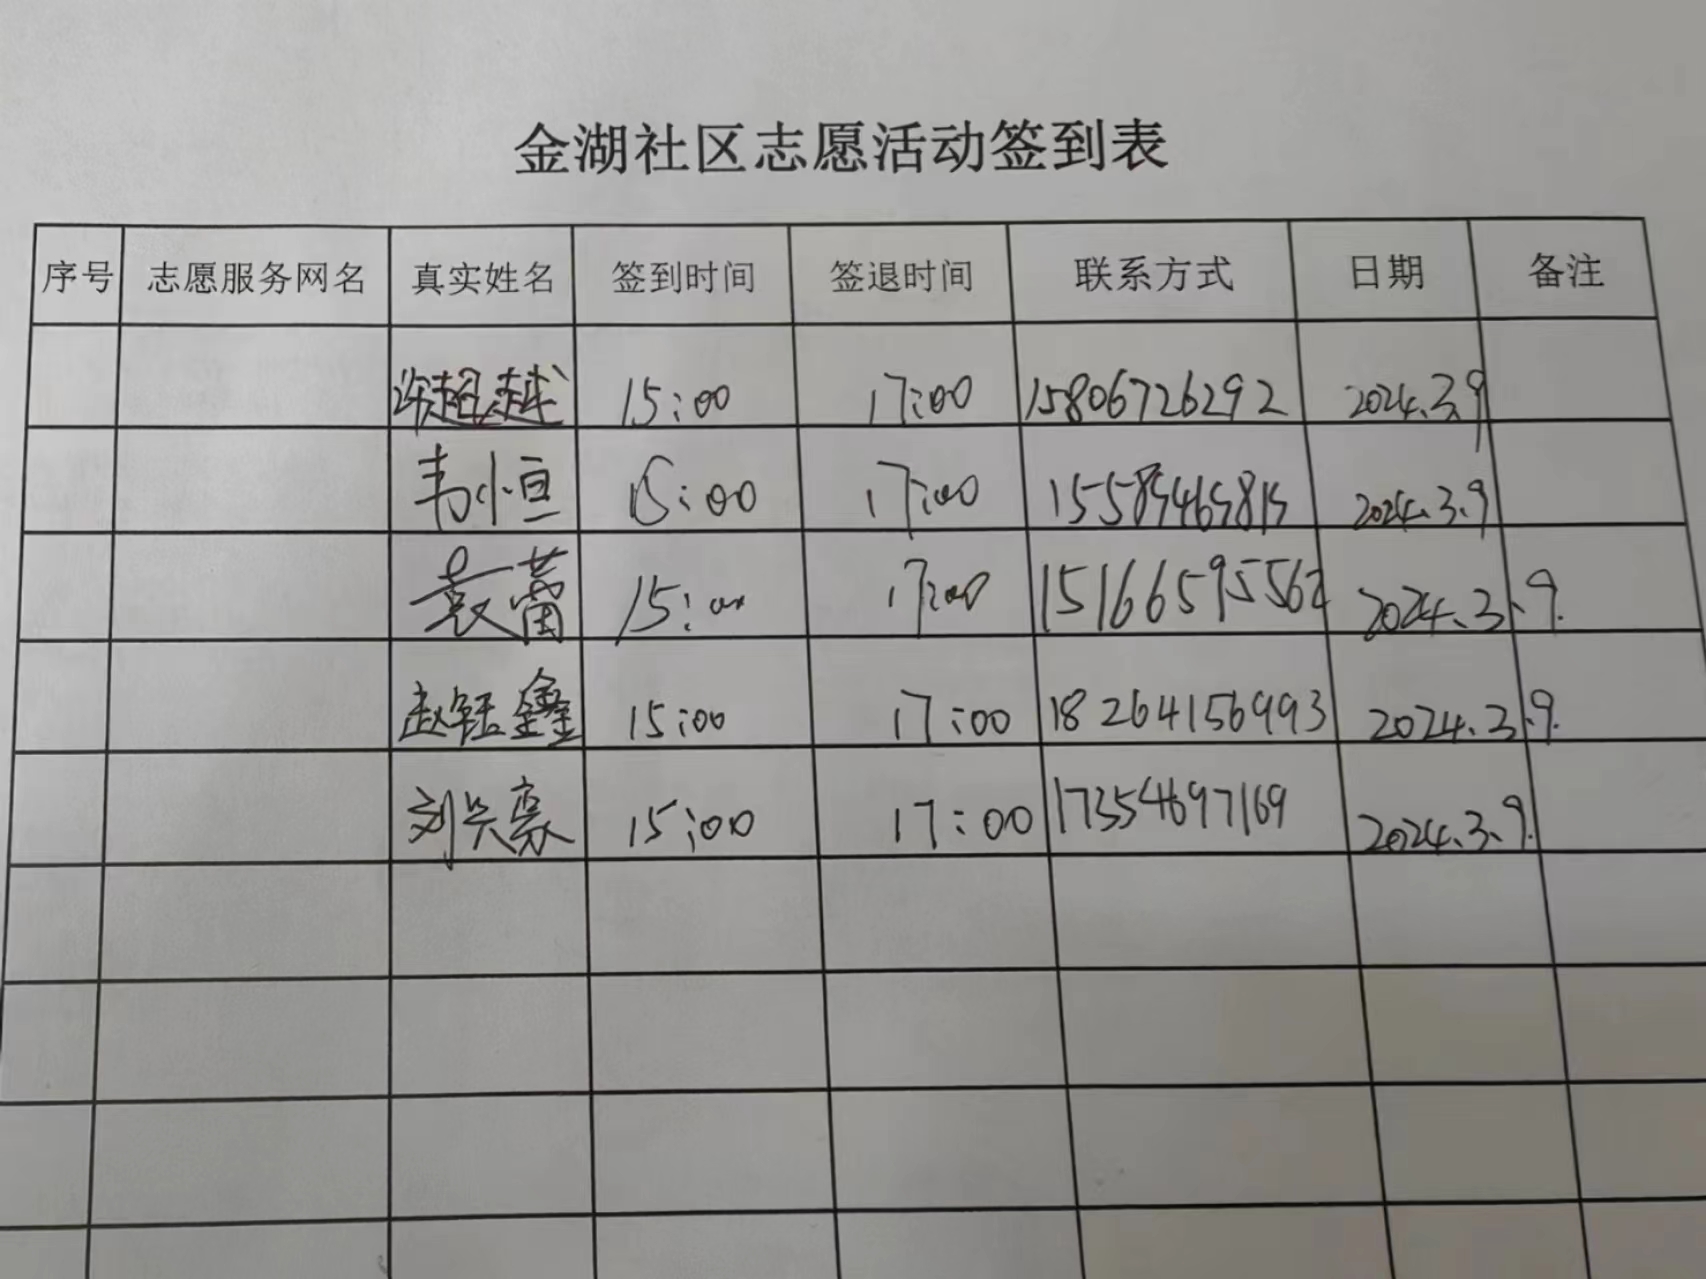 金湖社区志愿活动签到表
序号 志愿服务网名 真实姓名 签到时间 签退时间 联系方式 日期 备注
许超越 15:00 17:00 15806726292 2024.3.9
韦小恒 15:00 17:00 2024.3.9
袁蕾 15:00 17:00 15166595562 2024.3.9.
赵钰鑫 15:00 17:00 18264156993 2024.3.9.
刘兴豪 15:00 17:00 17354697169 2024.3.9.